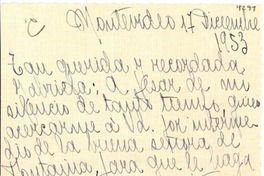 Montevideo 17 Diciembre
1953
Tan querida y recordada
Gabriela: A pesar de mi
silencio de tanto tiempo, quiero
acercarme a Vd. por interme
dio de la buena señora de
Fontaina, para que le haga